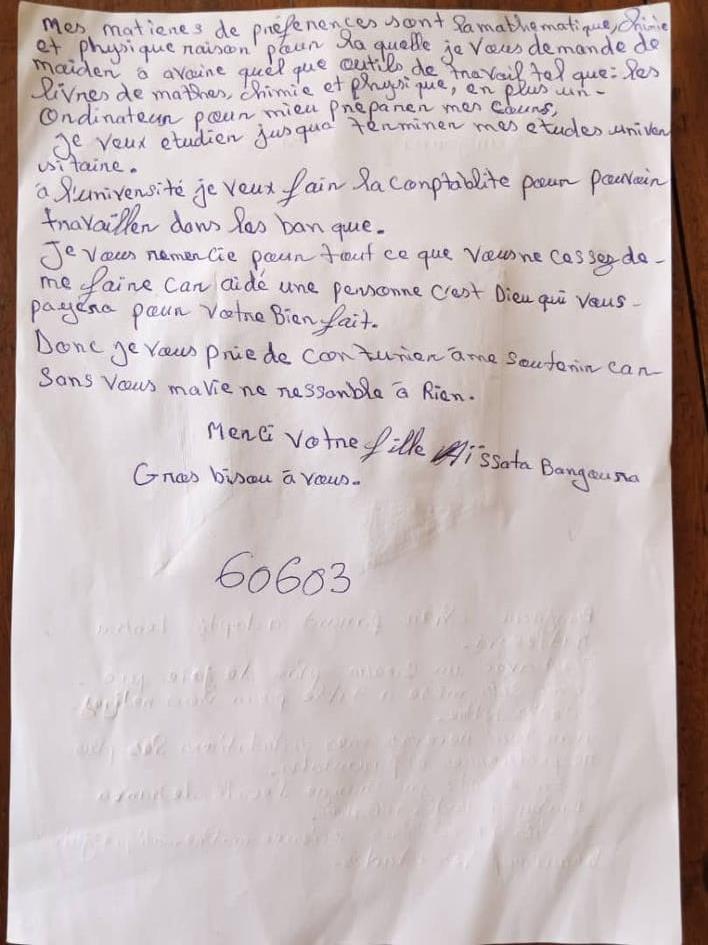 Mes matieres de préférences sont la mathematique, chimie
et physique raison pour la quelle je vous demande de
maider à avoire quel que outils de travail tel que : les
livres de mathes, chimie et physique, en plus un-
Ordinateur pour mieu préparer mes cours,
Je veux etudier jusqua terminer mes etudes univer
sitaire.
à l'université je veux fair la comptablite pour pouvoir
travailler dans les banque.
Je vous remercie pour tout ce que vous ne cessez de-
me faire car aidé une personne c'est Dieu qui vous-
payera pour votre Bien fait.
Donc je vous prie de contunier à me soutenir car
Sans vous ma vie ne ressemble à Rien.
Merci votre fille Aïssata Bangoura
Gros bisou à vous.
60603